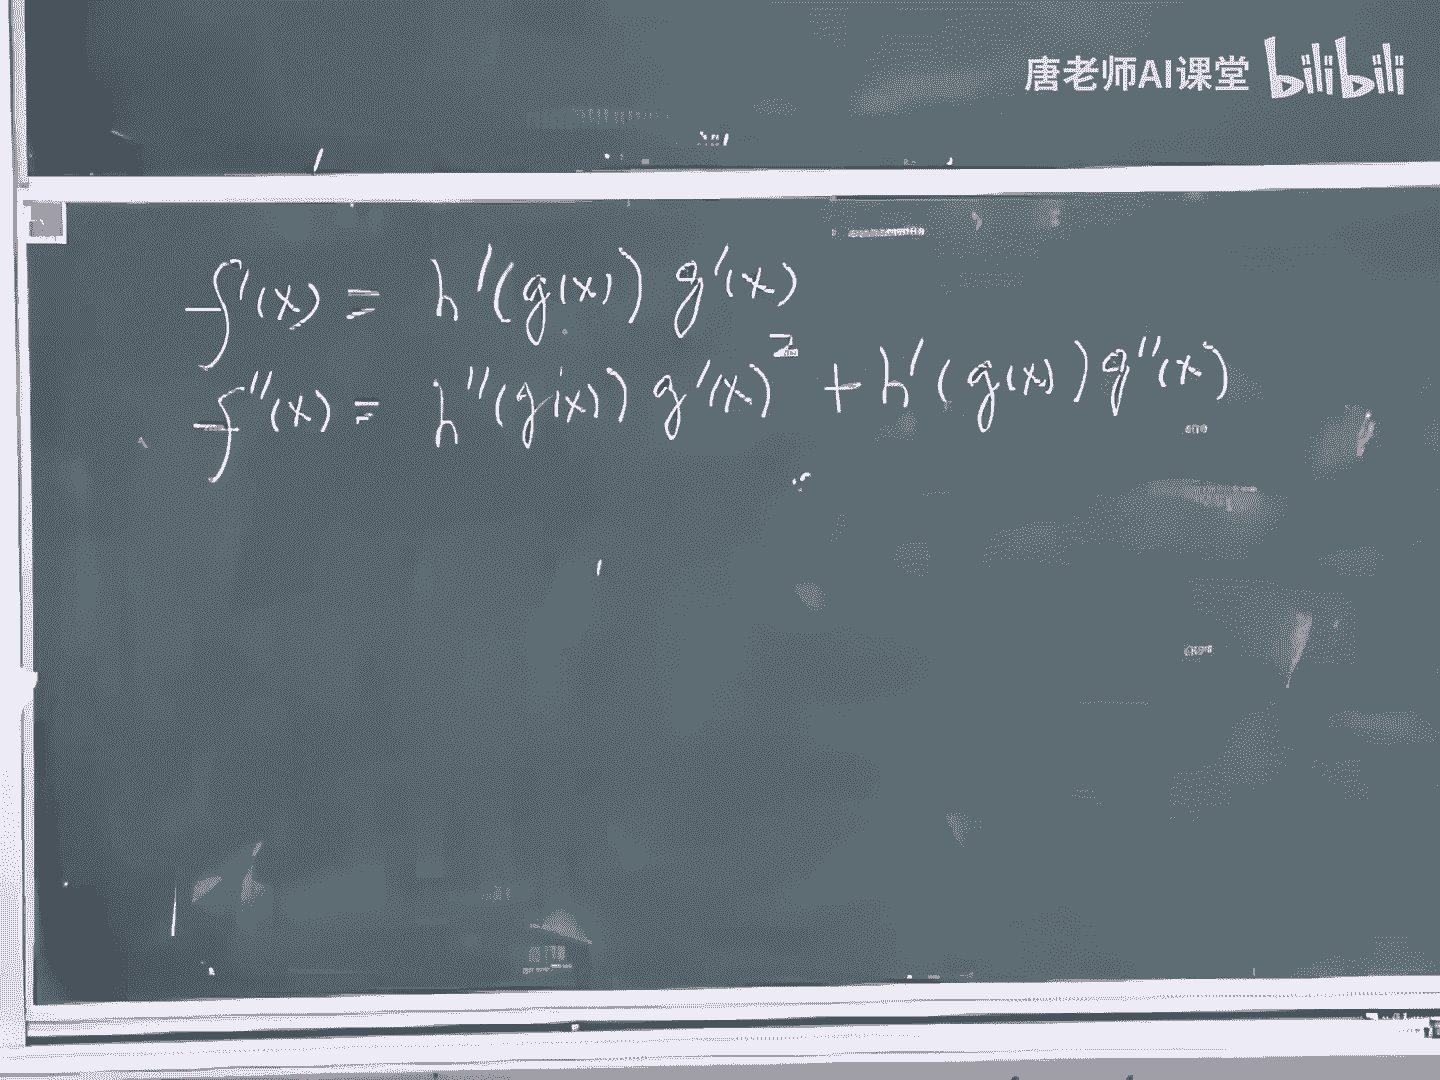 唐老师AI课堂 bilibili
f'(x) = h'(g(x)) g'(x)
f''(x) = h''(g(x)) g'(x)² + h'(g(x)) g''(x)